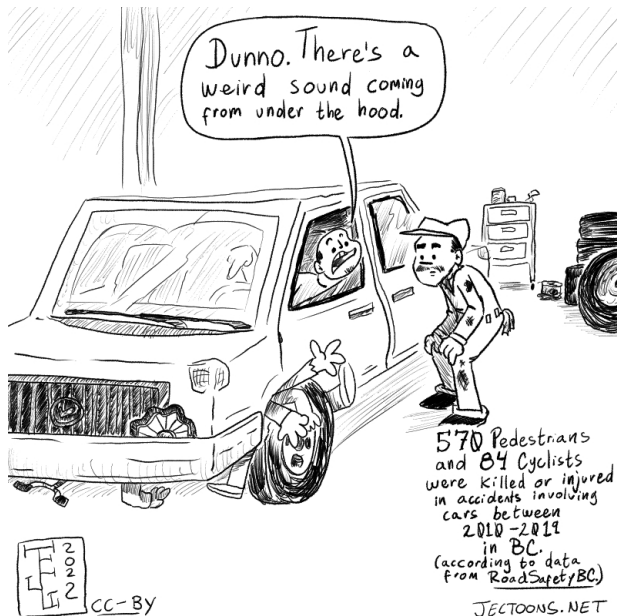 Dunno. There's a
weird sound coming
from under the hood.
570 Pedestrians
and 84 Cyclists
were killed or injured
in accidents involving
cars between
2010-2019
in BC.
(according to data
from RoadSafetyBC.)
2022
CC-BY
JECTOONS.NET